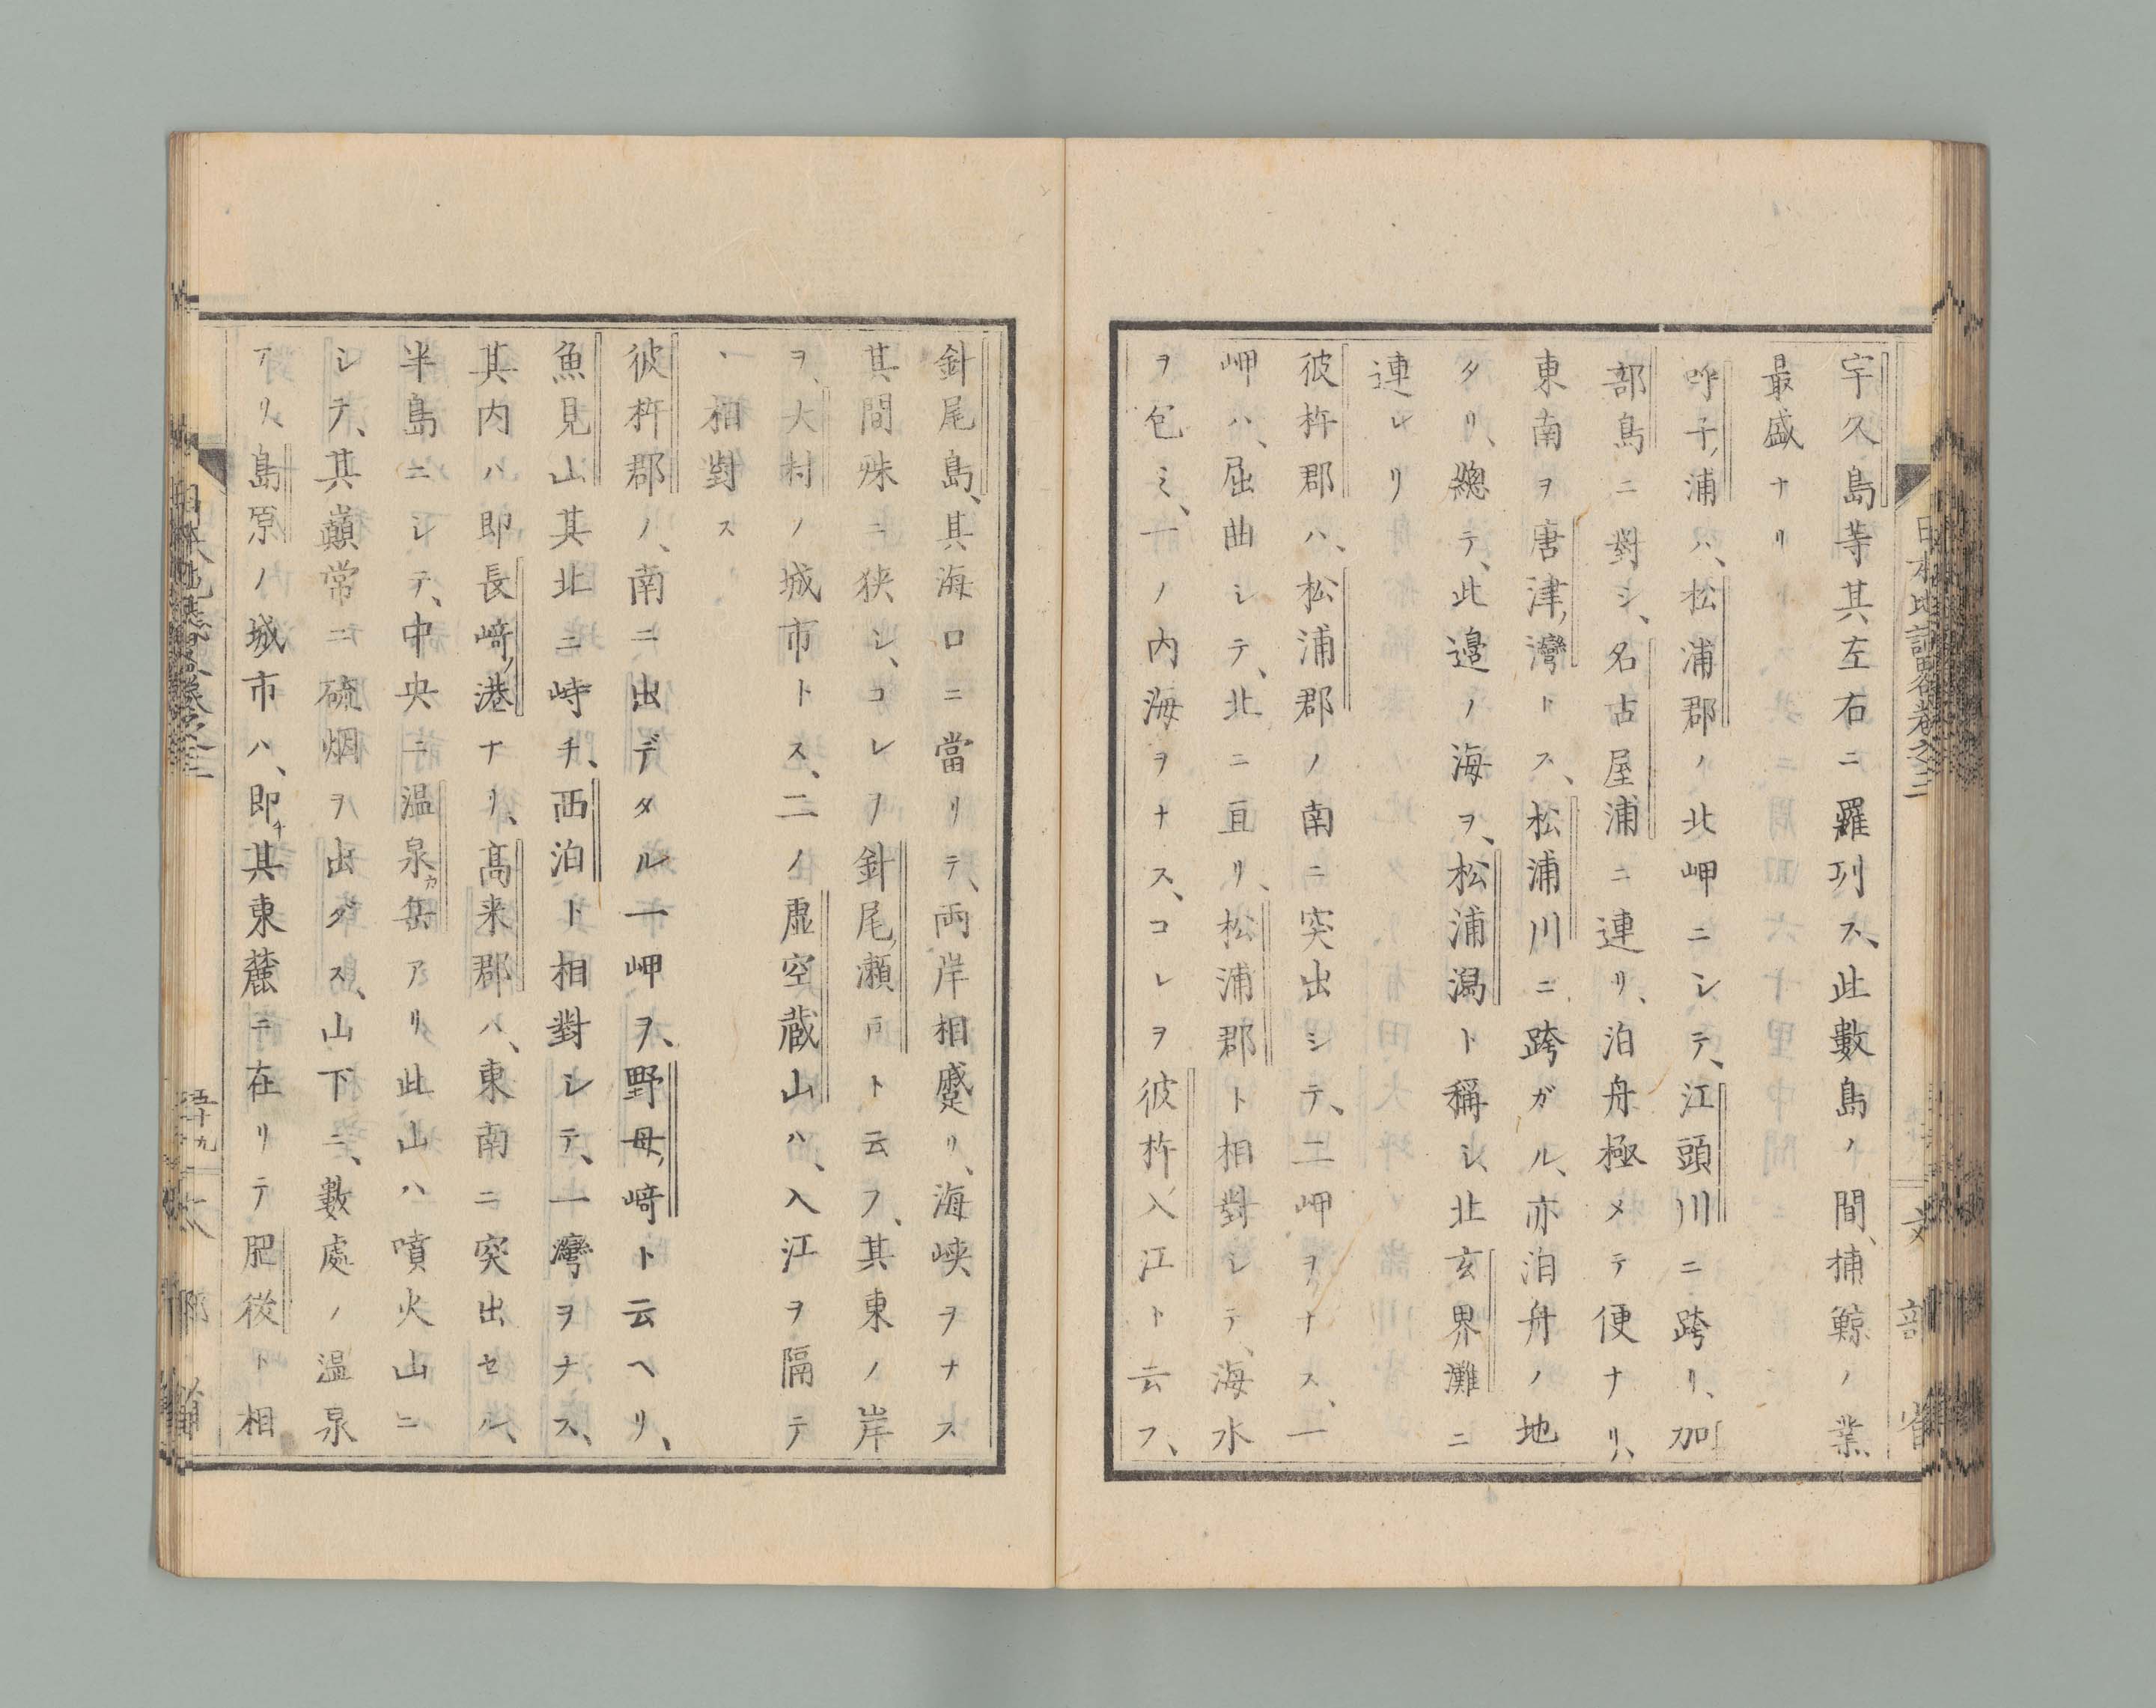 宇久島等其左右ニ羅列ス、此數島ノ間、捕鯨ノ業
最盛ナリ
呼子浦ハ、松浦郡ノ北岬ニシテ、江頭川ニ跨リ、加
部島ニ對シ、名古屋浦ニ連リ、泊舟極メテ便ナリ、
東南ヲ唐津灣トス、松浦川ニ跨ガル、亦泊舟ノ地
タリ、總テ、此邉ノ海ヲ、松浦潟ト稱シ、北玄界灘ニ
連レリ
彼杵郡ハ、松浦郡ノ南ニ突出シテ、二岬ヲナス、一
岬ハ、屈曲シテ、北ニ亘リ、松浦郡ト相對シテ、海水
ヲ包ミ、一ノ内海ヲナス、コレヲ彼杵入江ト云フ、
針尾島、其海口ニ當リテ、兩岸相蹙リ、海峡ヲナス
其間殊ニ狹シ、コレヲ針尾瀬戸ト云フ、其東ノ岸
ヲ、大村ノ城市トス、二ノ虚空蔵山ハ、入江ヲ隔テ
丶相對ス
彼杵郡ノ、南ニ出デタル一岬ヲ、野母﨑ト云ヘリ、
魚見山其北ニ峙チ、西泊ト相對シテ、一灣ヲナス、
其内ハ即長﨑港ナリ、髙来郡ハ、東南ニ突出セル、
半島ニシテ、中央ニ温泉カ岳アリ此山ハ噴火山ニ
シテ、其巓常ニ硫烟ヲ出ダス、山下ニ、數處ノ温泉
アリ、島原ノ城市ハ、即チ其東麓ニ在リテ肥後ト相
日本地誌畧卷之三
五十九
文部省